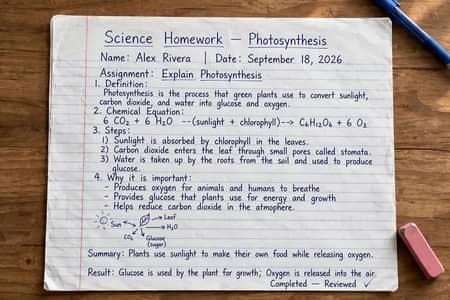 Science Homework — Photosynthesis
Name: Alex Rivera | Date: September 18, 2026
Assignment: Explain Photosynthesis
1. Definition:
Photosynthesis is the process that green plants use to convert sunlight,
carbon dioxide, and water into glucose and oxygen.
2. Chemical Equation:
6 CO₂ + 6 H₂O --(sunlight + chlorophyll)--> C₆H₁₂O₆ + 6 O₂
3. Steps:
1) Sunlight is absorbed by chlorophyll in the leaves.
2) Carbon dioxide enters the leaf through small pores called stomata.
3) Water is taken up by the roots from the soil and used to produce
glucose.
4. Why it is important:
- Produces oxygen for animals and humans to breathe
- Provides glucose that plants use for energy and growth
- Helps reduce carbon dioxide in the atmophere.
Sun
Leaf
H₂O
CO₂
Glucose
(sugar)
Summary: Plants use sunlight to make their own food while releasing oxygen.
Result: Glucose is used by the plant for growth; Oxygen is released into the air.
Completed — Reviewed ✓